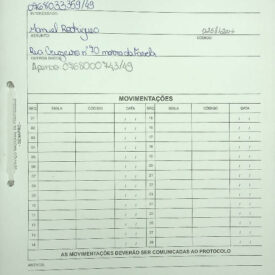 0768033359/49
INTERESSADO
Manuel Rodrigues
ASSUNTO
CÓDIGO
Rua Cruzeiro nº 70 morro da
OUTROS DADOS
Apenso: 0768000743/49
MOVIMENTAÇÕES
SEQ. SIGLA CÓDIGO DATA SEQ. SIGLA CÓDIGO DATA
01 / / 15 / /
02 / / 16 / /
03 / / 17 / /
04 / / 18 / /
05 / / 19 / /
06 / / 20 / /
07 / / 21 / /
08 / / 22 / /
09 / / 23 / /
10 / / 24 / /
11 / / 25 / /
12 / / 26 / /
13 / / 27 / /
14 / / 28 / /
AS MOVIMENTAÇÕES DEVERÃO SER COMUNICADAS AO PROTOCOLO